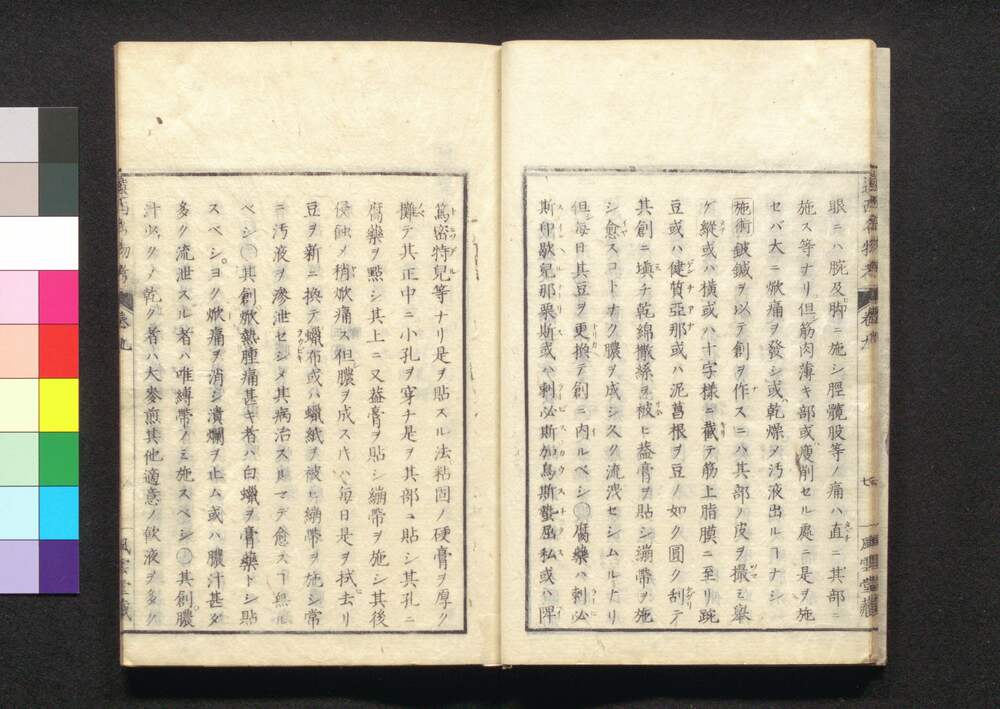 眼ニハ腕及脚ニ施シ脛髖股等ノ痛ハ直ニ其部ニ
施ス等ナリ但筋肉薄キ部或ハ瘦削セル處ニ是ヲ施
セバ大ニ焮痛ヲ發シ或ハ乾燥メ汚液出ルヿナシ
施術鈹鍼ヲ以テ創ヲ作スニハ其部ノ皮ヲ撮ミ舉
ケ縱或ハ橫或ハ十字樣ニ截テ筋上脂膜ニ至リ豌
豆或ハ健質亞那或ハ泥菖根ヲ豆ノ如ク圓ク刮テ
其創ニ塡チ乾綿撒絲ヲ被ヒ葢膏ヲ貼シ繃帶ヲ施
シ愈スコトナク膿ヲ成シ久ク流泄セシムルトリ
但每日其豆ヲ更換テ創ニ內ルベシ腐藥ハ刺必
斯印歇兒那栗斯或ハ刺必斯加烏斯蜚屈私或ハ
篤密特兒等ナリ是ヲ貼スル法粘固ノ硬膏ヲ厚ク
攤テ其正中ニ小孔ヲ穿チ是ヲ其部ニ貼シ其孔ニ
腐藥ヲ點シ其上ニ又葢膏ヲ貼シ繃帶ヲ施シ其後
侵蝕メ稍焮痛ス但膿ヲ成ス𪜈ハ每日是ヲ拭去リ
豆ヲ新ニ換テ蠟布或ハ蠟紙ヲ被ヒ繃帶ヲ施シ常
ニ汚液ヲ滲泄セシメ其病治スルマデ愈スヿ無ル
ベシ其創焮熱腫痛甚キ者ハ白蠟ヲ膏藥トシ貼
スベシヨク焮痛ヲ消シ潰爛ヲ止ム或ハ膿汁甚ダ
多ク流泄スル者ハ唯縛帶ノミ施スベシ其創膿
汁少クメ乾ク者ハ大麥煎其他適意ノ飲液ヲ多ク